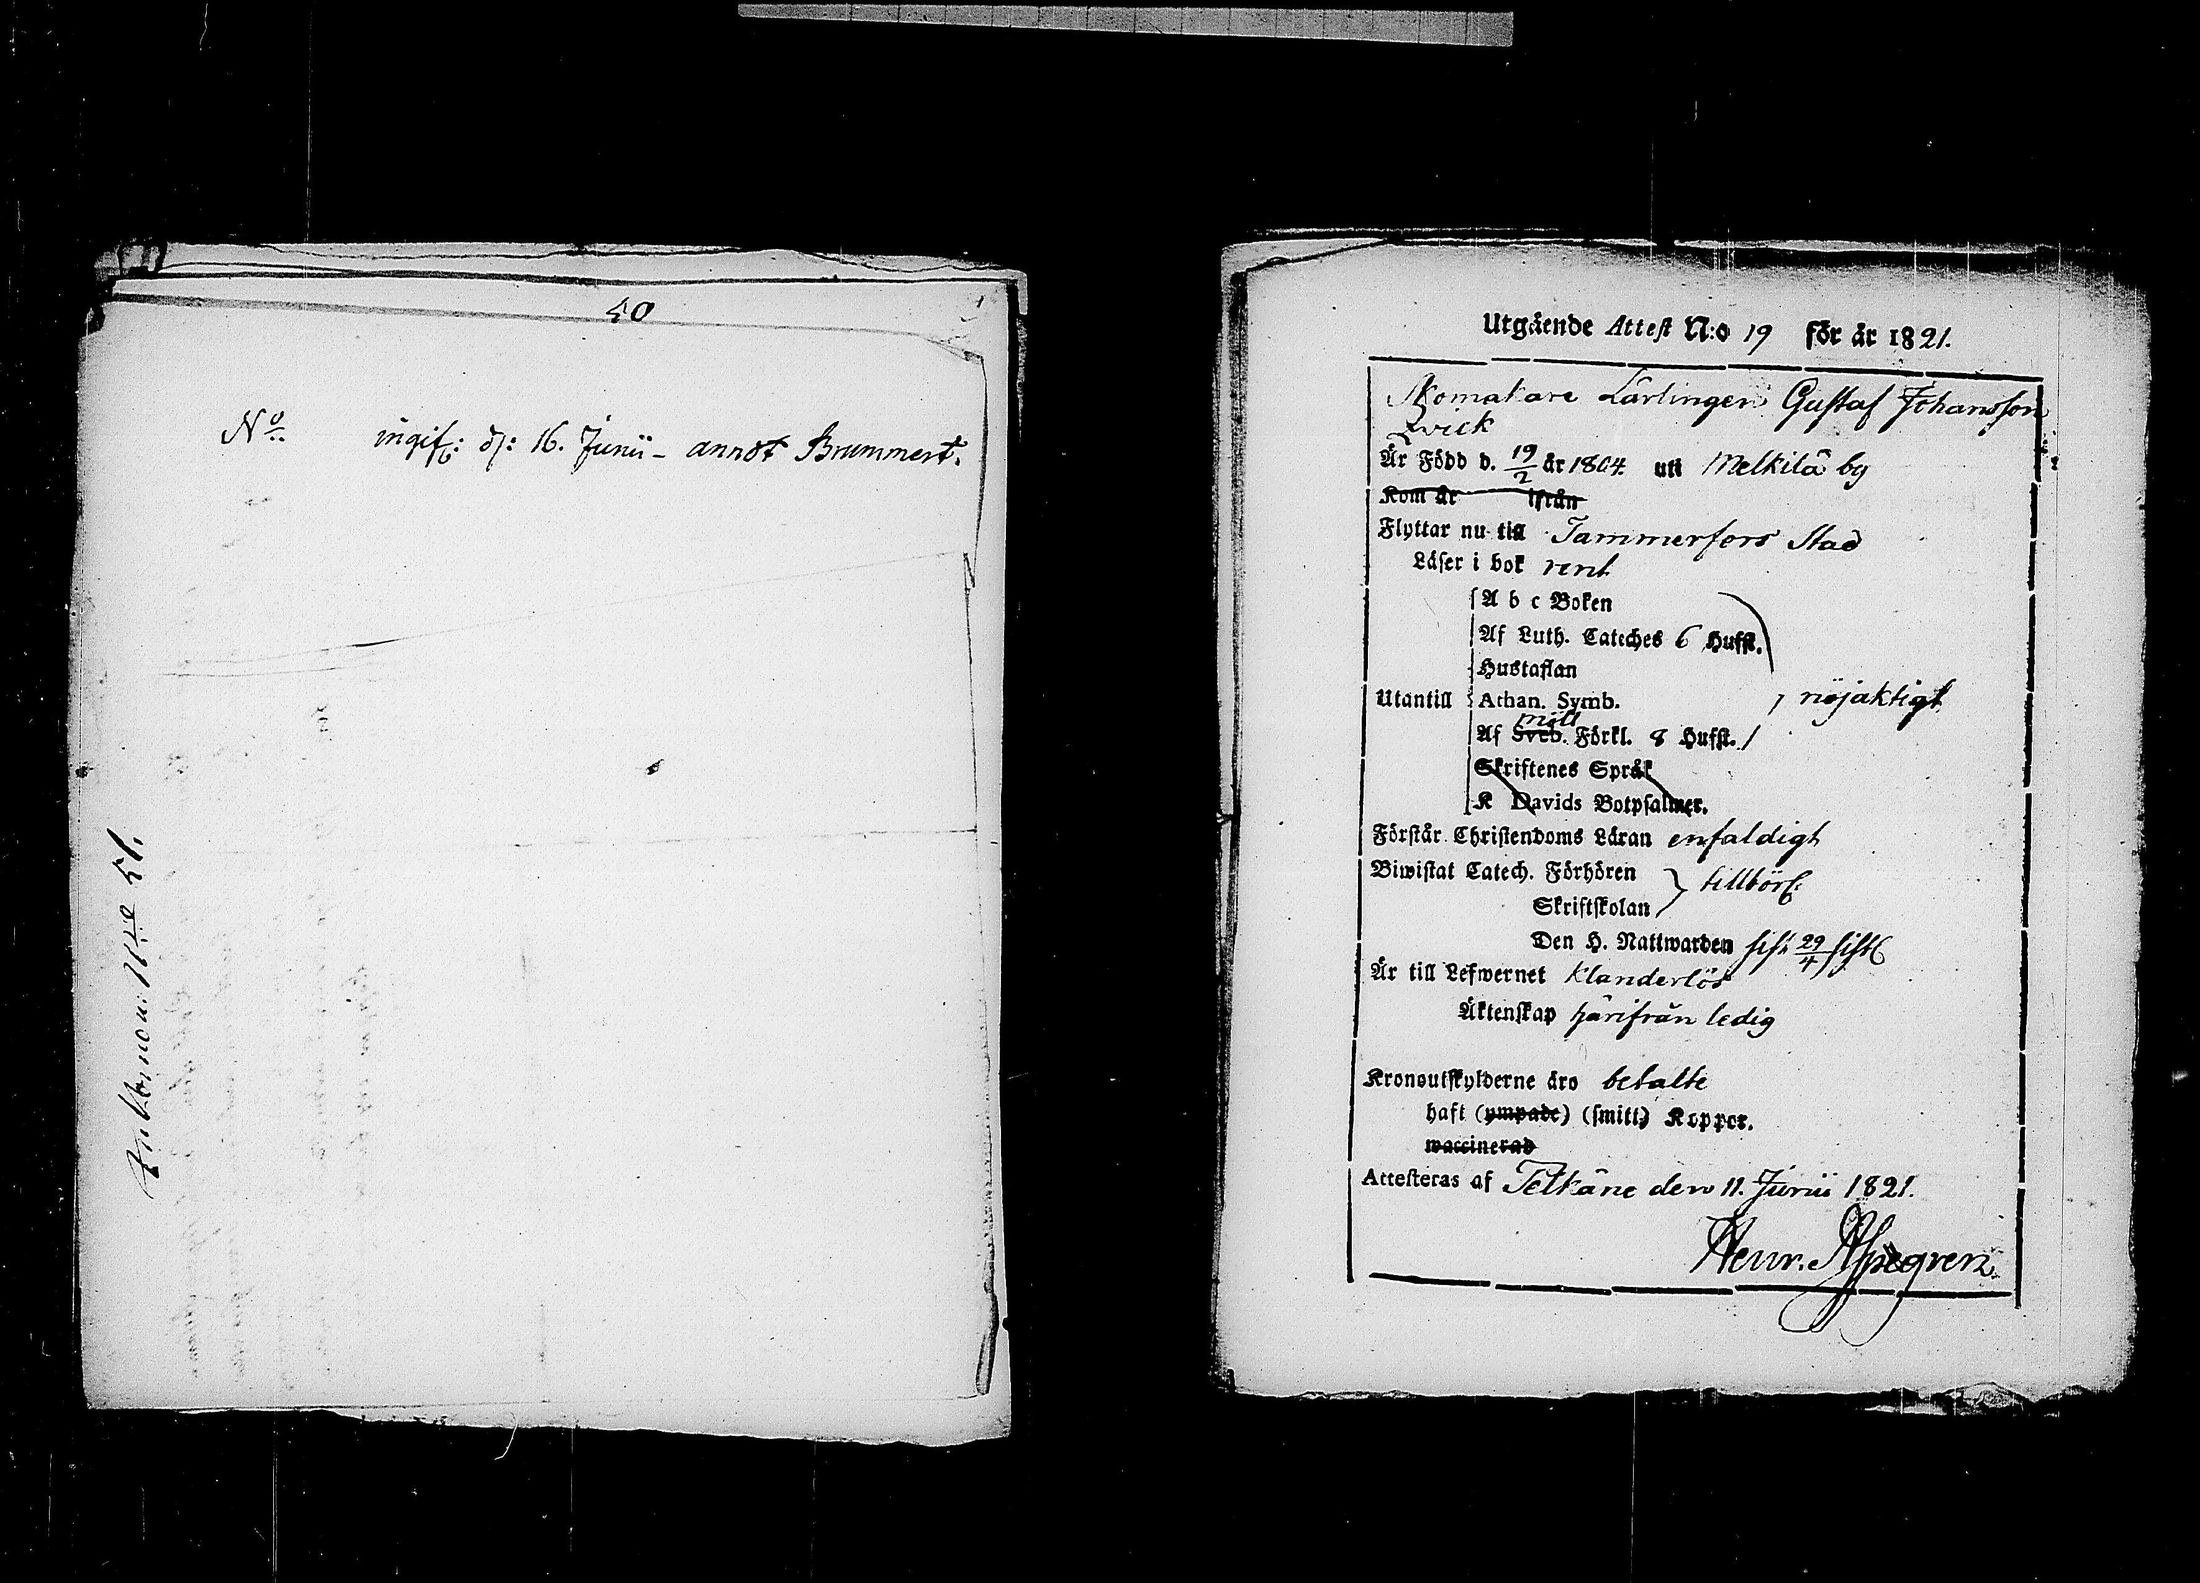 50
No ingif: d: 16. Junii - annot Brummert.
Utgående Attest N:o 19 för år 1821.
Skomakare Lärlingen Gustaf Johansson
Qvick
Är Född d. 19/2 år 1804 uti Melkilä by
Kom år ifrån
Flyttar nu till Tammerfors Stad
Läser i bok rent
A b c Boken
Af Luth. Cateches 6 Hufst.
Hustaflan
Utantill Athan. Symb. nöjaktigt
möll
Af Sveb. Förkl. 8 Hufst.
Skriftenes Språk
K Davids Botpsalmer.
Förstår Christendoms Läran enfaldigt
Biwistat Catech. Förhören tillbörl:
Skriftskolan
Den H. Nattwarden sist 29/4
Är till Lefwernet Klanderlös
Äktenskap härifrån ledig
Kronoutskylderne äro betalte
haft (ympade) (smitt) Koppor.
waccinerad
Attesteras af Pelkäne den 11. Junii 1821.
Henr. Aspegren